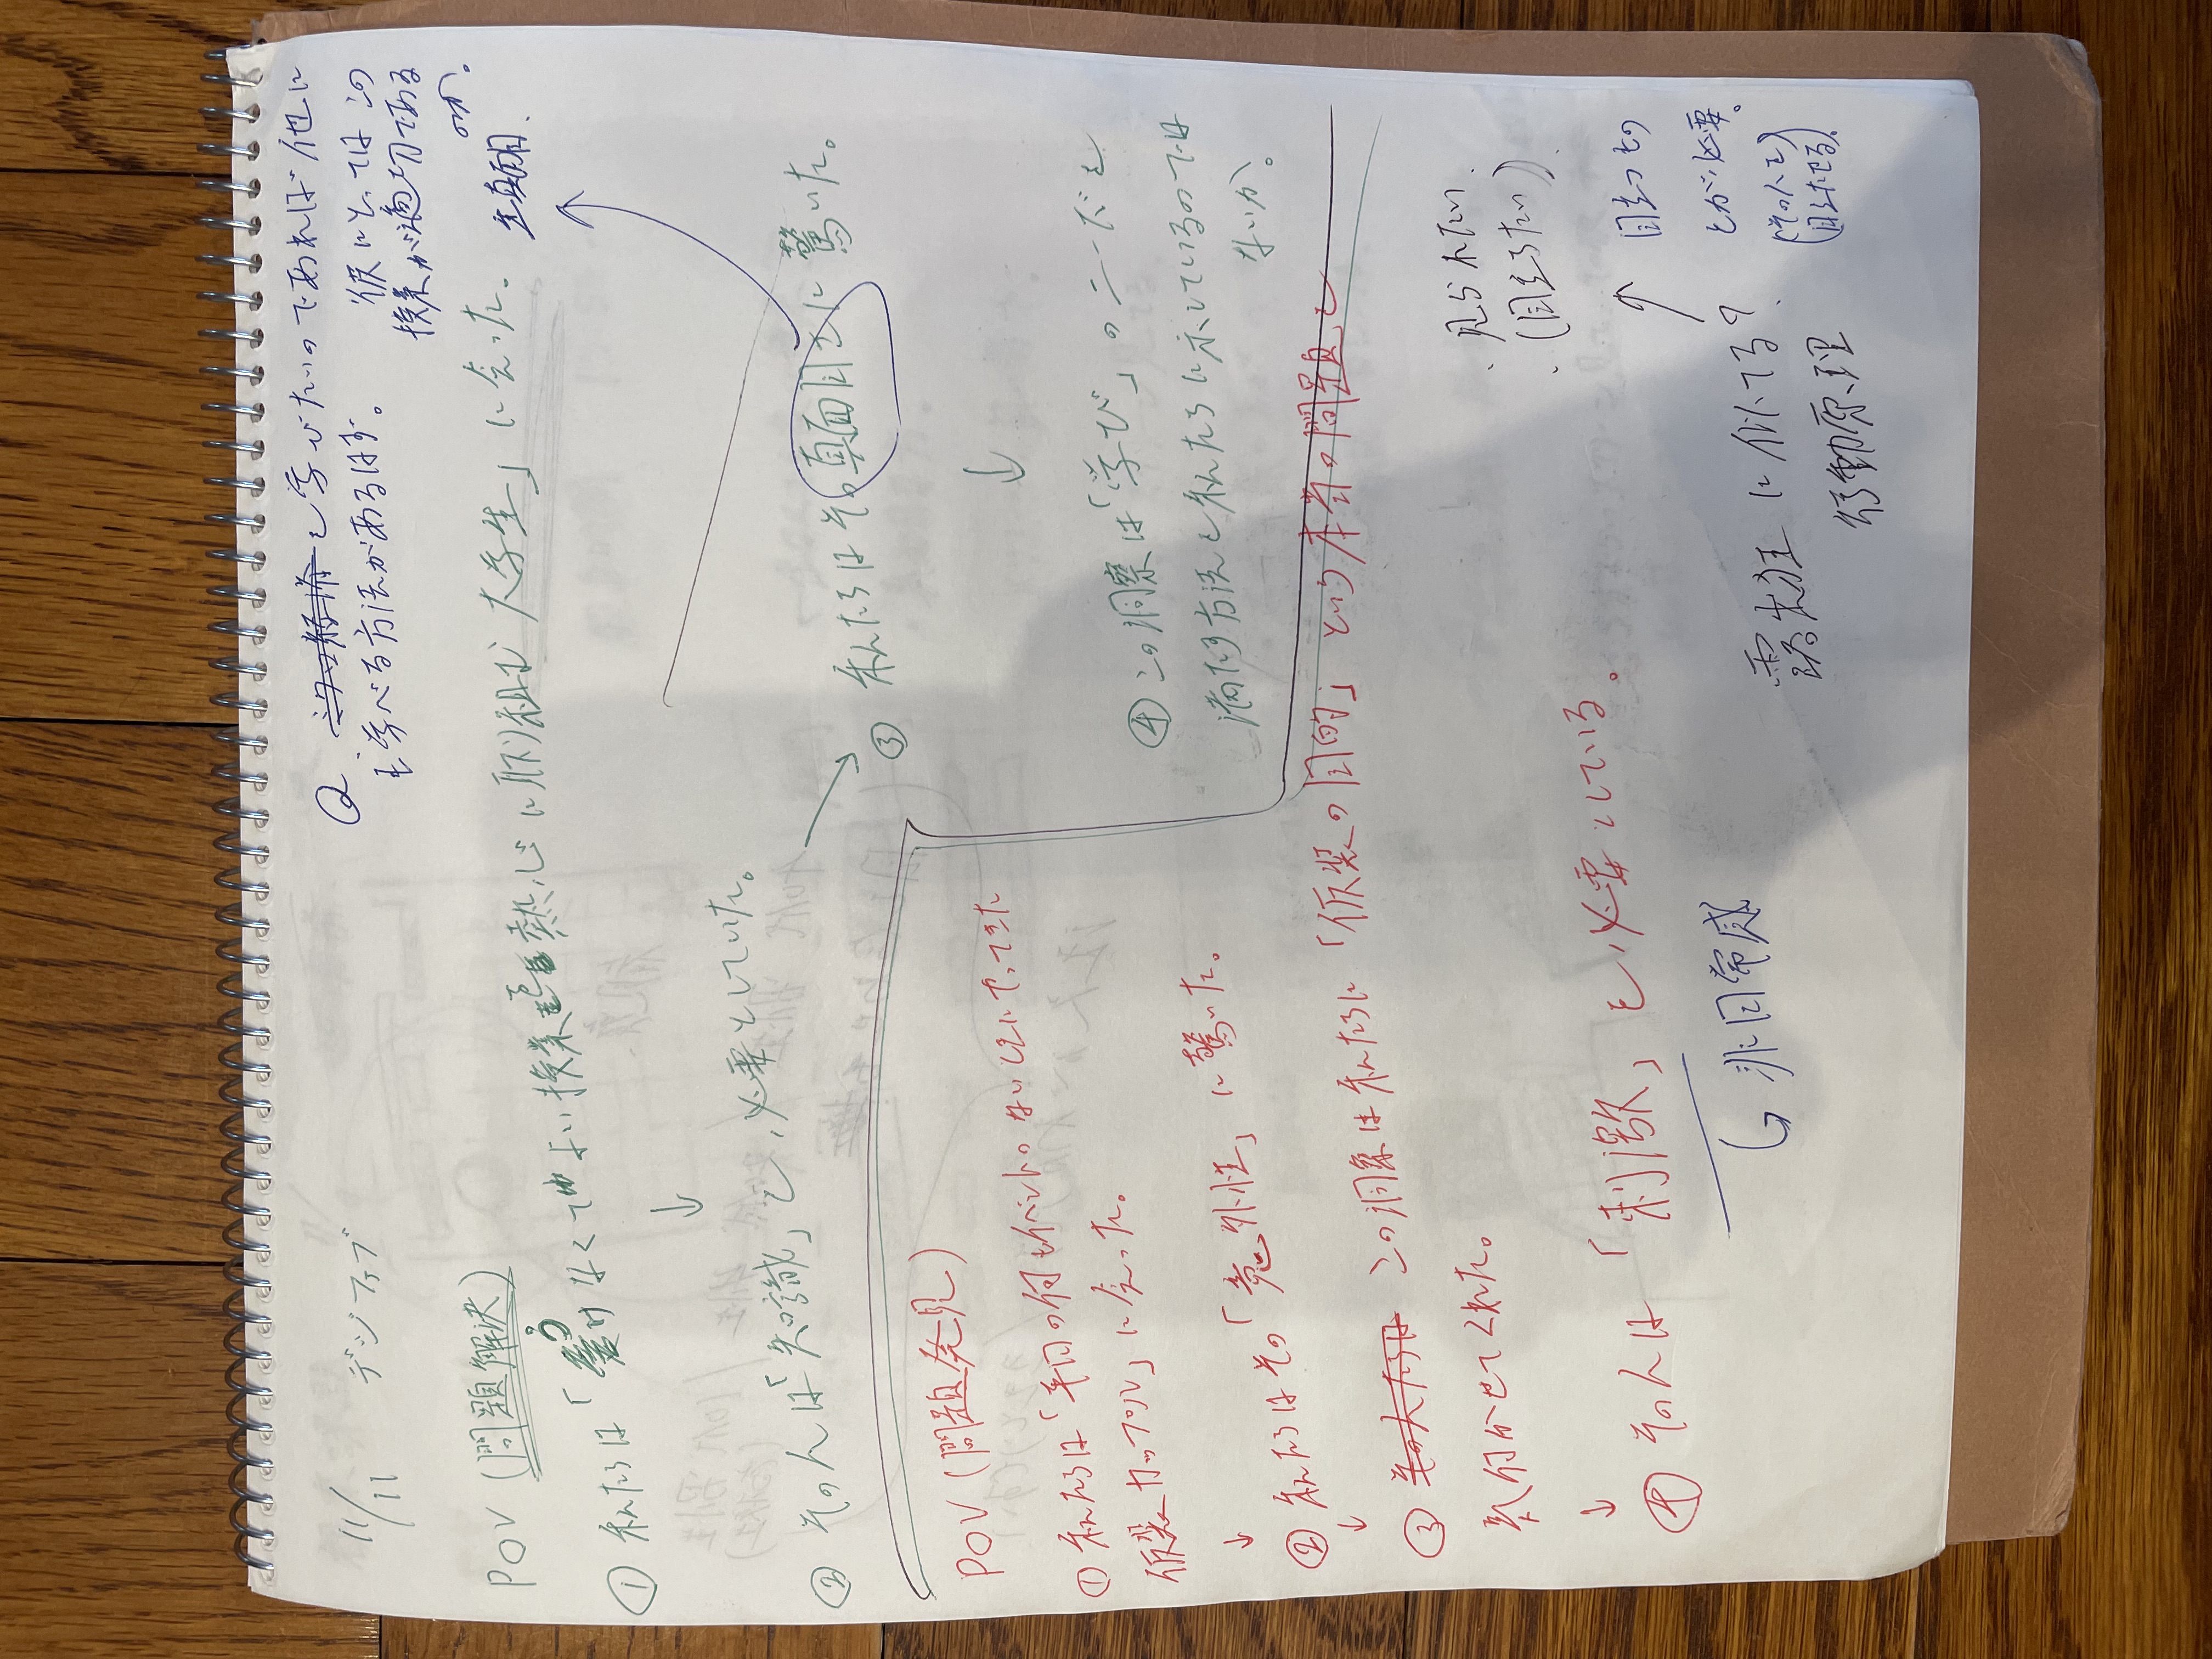 11/11 デジファブ
Q. を学びたいのであれば他に
も学べる方法があるはず。
彼にとってはこの
授業が適切である
のか。
生真面目.
POV (問題解決)
① 私たちは「受けなくてもよい授業を熱心に取り組む大学生」に会った。
↓
② その人は「知識」を必要としていた。
→
③ 私たちはその真面目さに驚いた。
↓
④ この洞察は「学び」のニーズを
満たす方法を私たちに示しているのでは
ないか。
POV (問題発見)
① 私たちは「平日の何もイベントのないときにやってきた
仮装カップル」に会った。
↓
② 私たちはその「意外性」に驚いた。
↓
③ その人たちは この洞察は私たちに「仮装の目的」という本当の問題を
気付かせてくれた。
↓
④ その人は「刺激」を必要としている。
↳ 非日常感
・見られたい
・(目立ちたい)
露出狂に似てる?
行動原理
目立つもの
とが必要。
(その人を
目立たせる。)